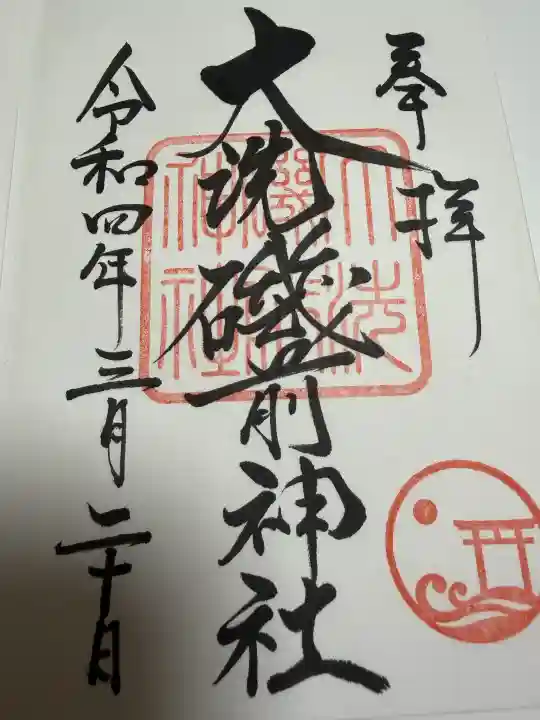 奉拝
大洗磯前神社
大洗磯前神社
令和四年三月二十日